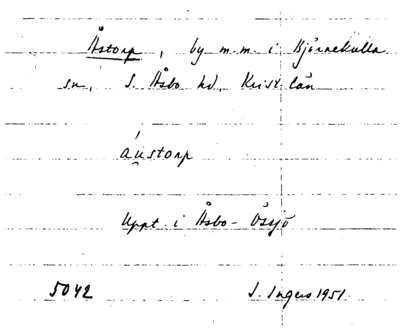 Åstorp, by m.m. i Björnekulla
sn, S. Åsbo hd, Krist. län
áustorp
Uppt. i Åsbo-Össjö
5042 I. Ingers 1951.